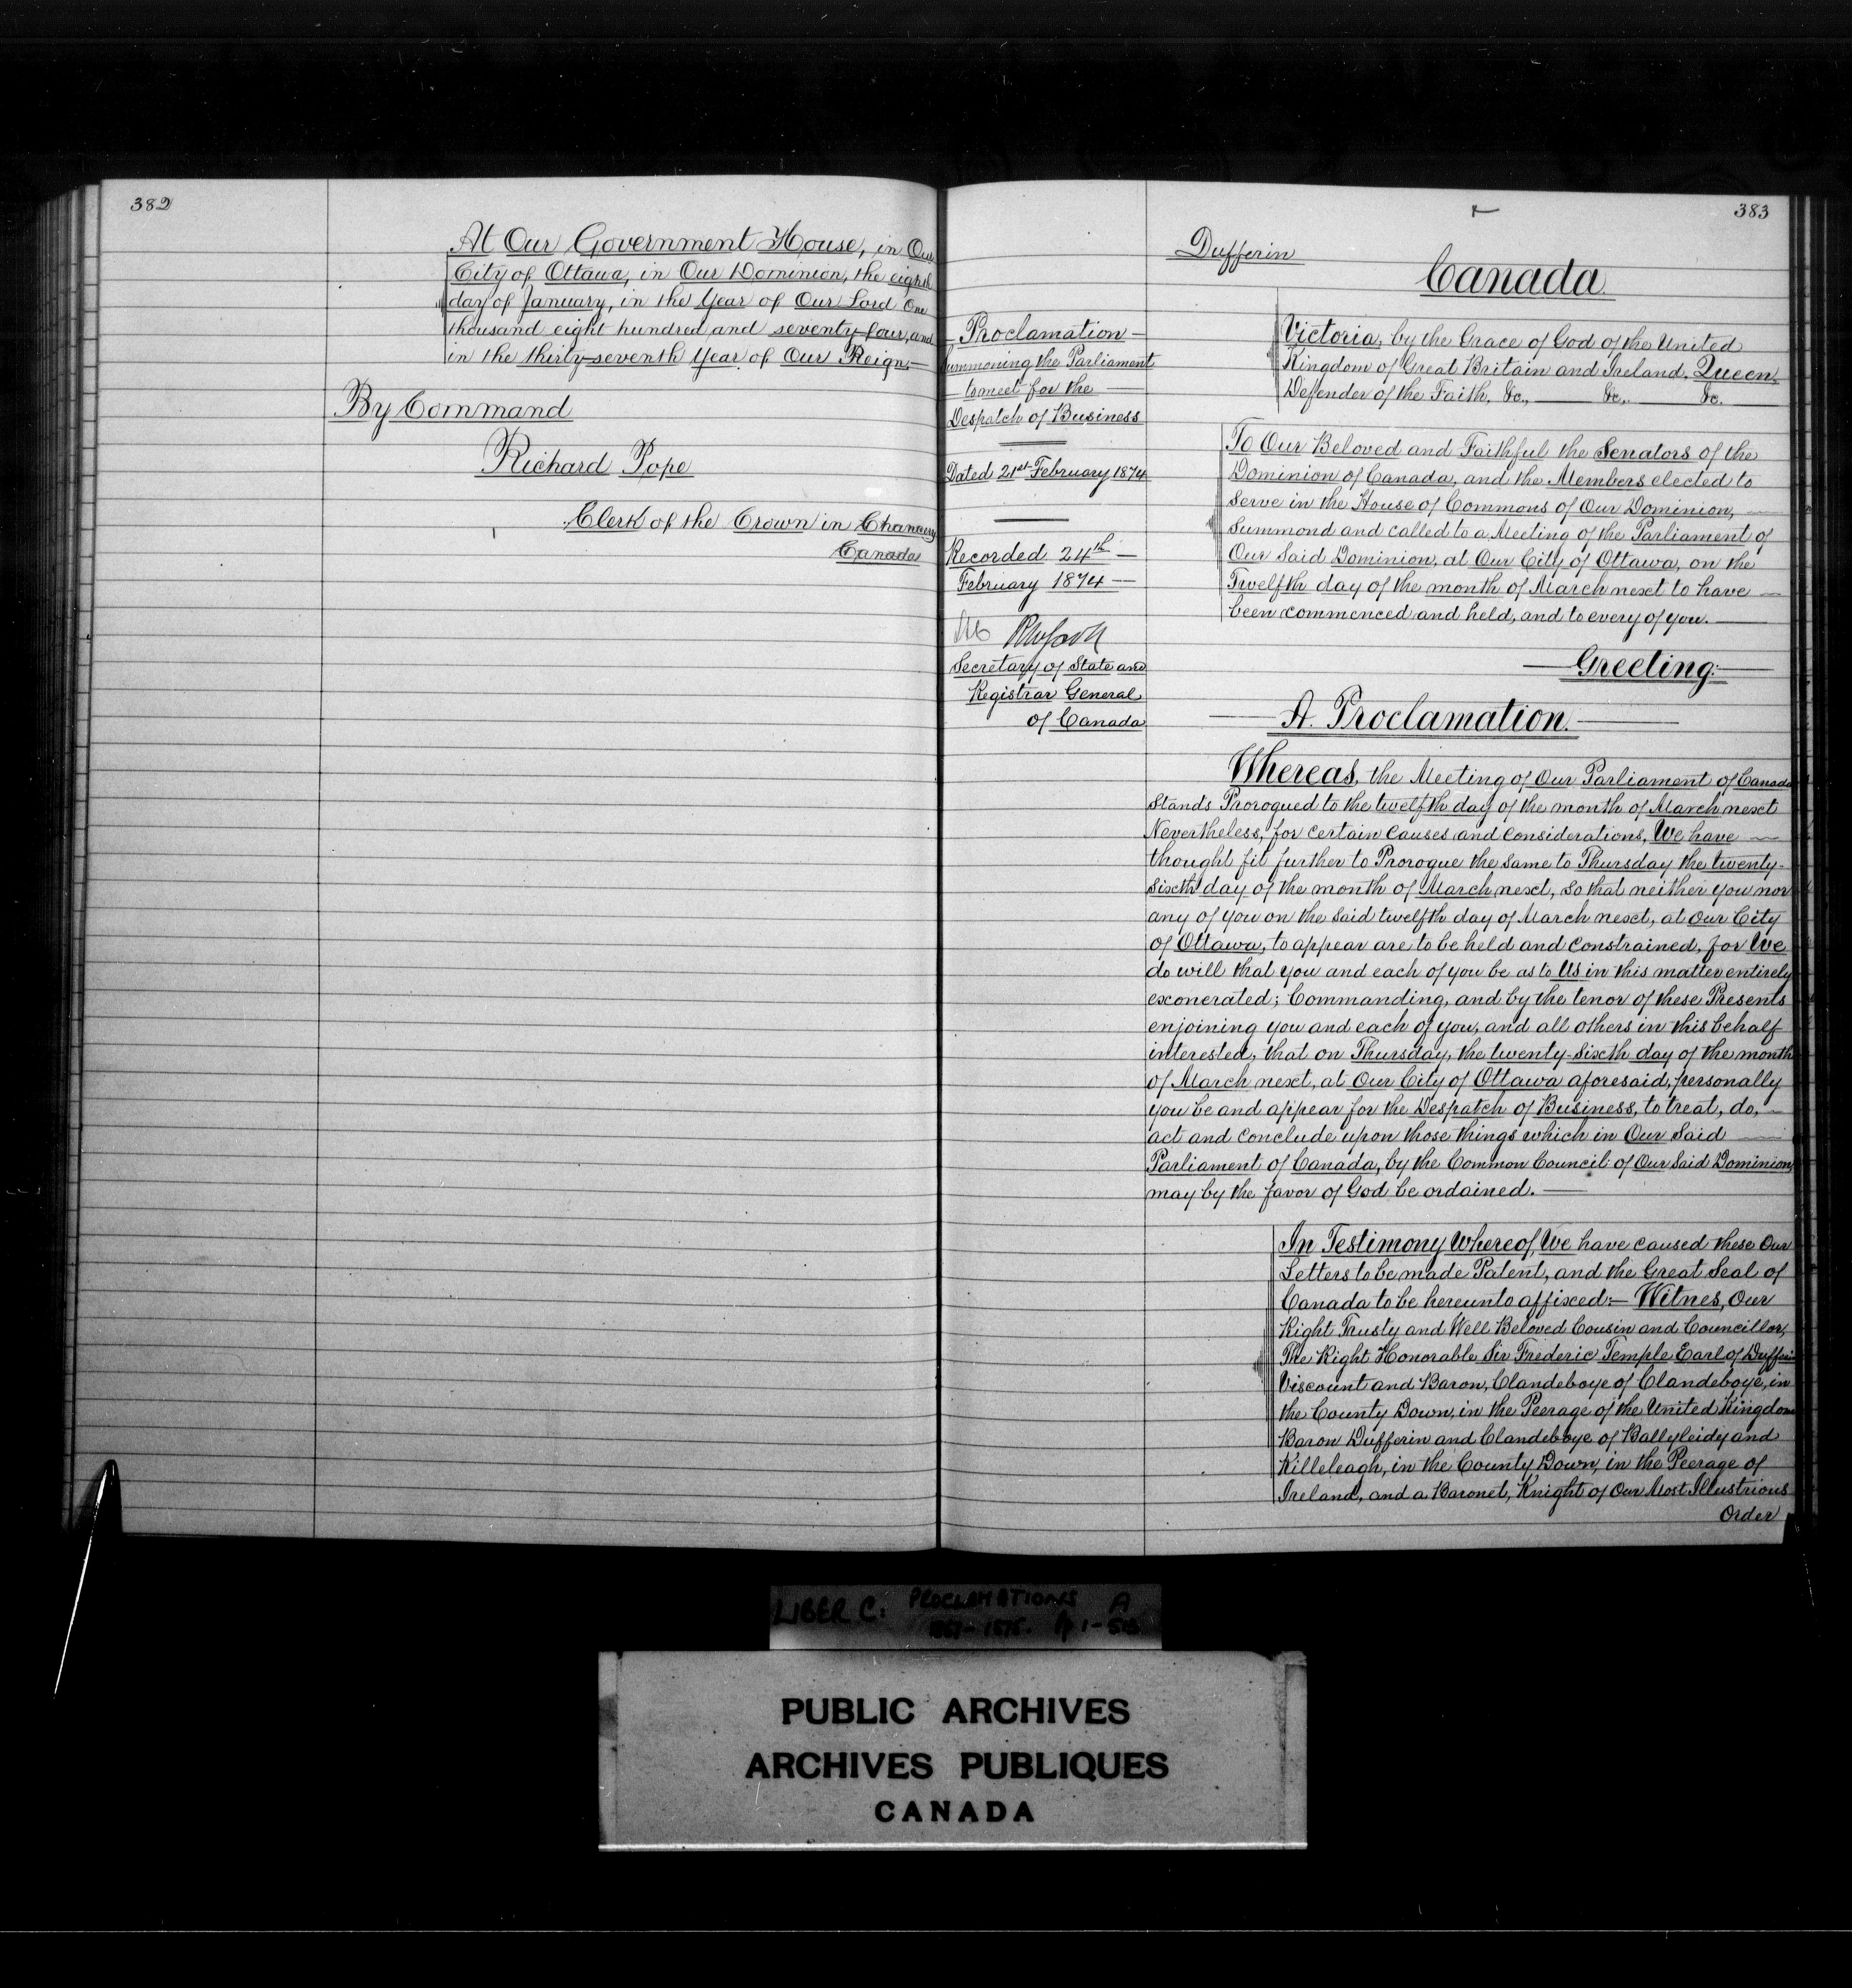 382
At Our Government House, in Our
City of Ottawa, in Our Dominion, the eighth
day of January, in the Year of Our Lord One
thousand eight hundred and seventy-four, and
in the thirty-seventh Year of Our Reign,—
By Command
Richard Pope
Clerk of the Crown in Chancery
Canada
383
Dufferin
Canada
Proclamation —
Summoning the Parliament
to meet for the —
Despatch of Business
Dated 21st February 1874
Recorded 24th —
February 1874 —
Secretary of State and
Registrar General
of Canada
Victoria, by the Grace of God of the United
Kingdom of Great Britain and Ireland, Queen,
Defender of the Faith, &c., — &c., — &c.
To Our Beloved and Faithful the Senators of the
Dominion of Canada, and the Members elected to
Serve in the House of Commons of Our Dominion, —
Summond and called to a Meeting of the Parliament of
Our Said Dominion, at Our City of Ottawa, on the
Twelfth day of the month of March next to have —
been commenced and held, and to every of you. —
— Greeting: —
— A. Proclamation. —
Whereas, the Meeting of Our Parliament of Canada
Stands Prorogued to the twelfth day of the month of March next
Nevertheless, for certain Causes and Considerations, We have —
thought fit further to Prorogue the same to Thursday the twenty-
sixth day of the month of March next, so that neither you nor
any of you on the said twelfth day of March next, at Our City
of Ottawa, to appear are to be held and constrained, for We
do will that you and each of you be as to Us in this matter entirely
exonerated; Commanding, and by the tenor of these Presents
enjoining you and each of you, and all others in this behalf
interested, that on Thursday, the twenty-sixth day of the month
of March next, at Our City of Ottawa aforesaid, personally
you be and appear for the Despatch of Business, to treat, do, —
act and conclude upon those things which in Our Said —
Parliament of Canada, by the Common Council of Our Said Dominion,
may by the favor of God be ordained. —
In Testimony Whereof, We have caused these Our
Letters to be made Patent, and the Great Seal of
Canada to be hereunto affixed:— Witnes, Our
Right Trusty and Well Beloved Cousin and Councillor,
The Right Honorable Sir Frederic Temple Earl of Dufferin
Viscount and Baron, Clandeboye of Clandeboye, in
the County Down, in the Peerage of the United Kingdom
Baron Dufferin and Clandeboye of Ballyleidy and
Killeleagh, in the County Down, in the Peerage of
Ireland, and a Baronet, Knight of Our Most Illustrious
Order
LIBER C: PROCLAMATIONS A
PUBLIC ARCHIVES
ARCHIVES PUBLIQUES
CANADA